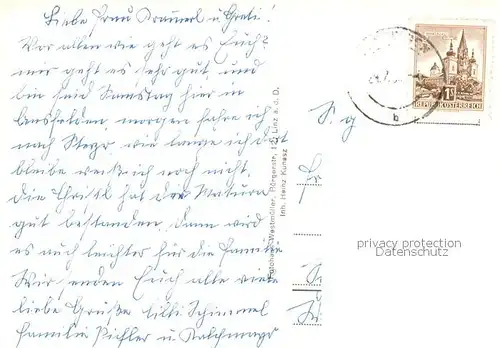 Liebe Frau Krauerl u. Gretl!
Vor allem wie geht es Euch?
mir geht es sehr gut, und
bin seit Samstag hier in
Ansfelden, morgen fahre ich
nach Steyr wie lange ich dort
bleibe weiß ich noch nicht.
die Christl hat die Matura
gut bestanden, dann wird
es auch leichter für die Familie
Wir senden Euch alle viele
liebe Grüße Lilli Schimmel
Familie Pichler u.
Fotohaus Westmüller, Rörgerstr. Linz a. d. D.
Inh. Heinz Kunesz
S. g
REPUBLIK ÖSTERREICH
b
privacy protection
Datenschutz